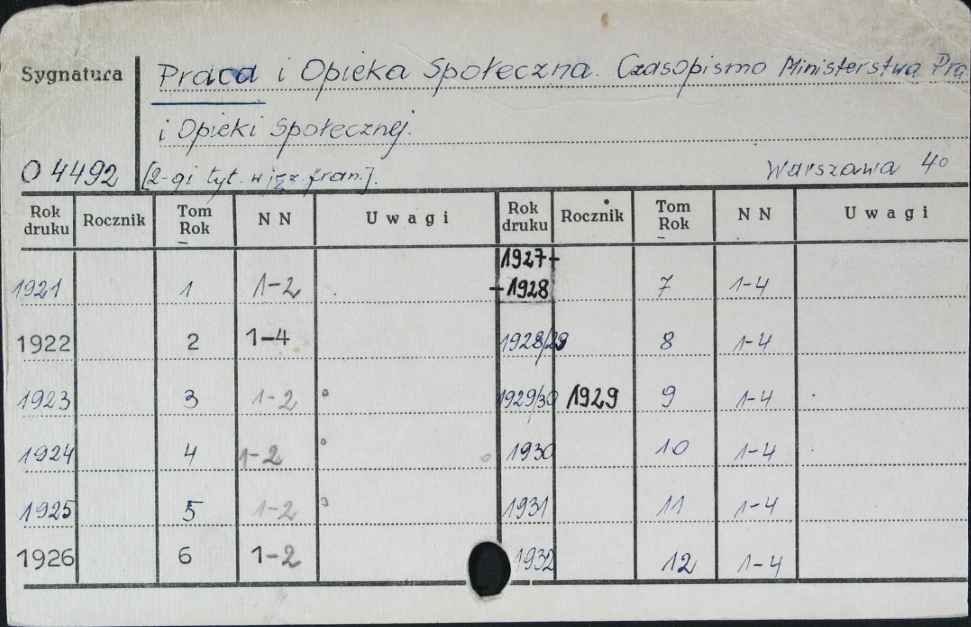 Sygnatura Praca i Opieka Społeczna. Czasopismo Ministerstwa Pra
i Opieki Społecznej.
O 4492 [2-gi tyt. w jęz. fran.]. Warszawa 4º
Rok druku Rocznik Tom Rok NN Uwagi Rok druku Rocznik Tom Rok NN Uwagi
1921 1 1-2 1927-1928 7 1-4
1922 2 1-4 1928/29 8 1-4
1923 3 1-2 1929/30 1929 9 1-4
1924 4 1-2 1930 10 1-4
1925 5 1-2 1931 11 1-4
1926 6 1-2 1932 12 1-4